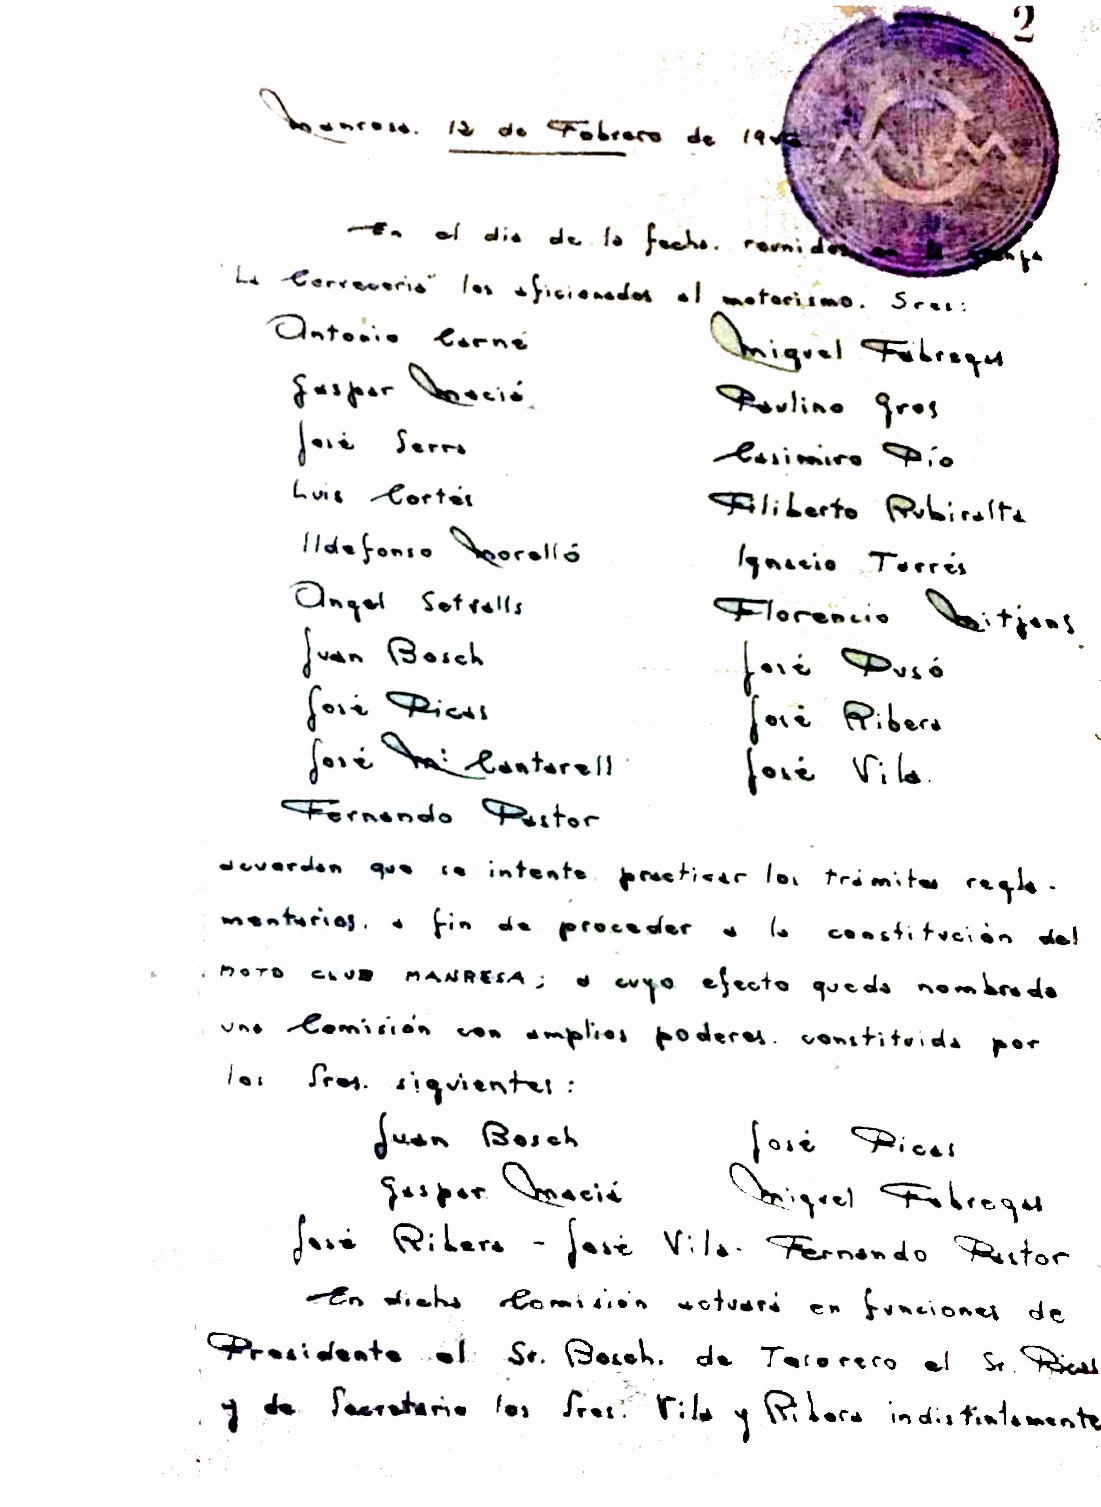 2
Manresa. 12 de Febrero de
En el dia de la fecha. reunidos en la
"La Cerveceria" los aficionados al motorismo. Sres:
Antonio Carné Miguel Fábregas
Gaspar Maciá Paulino Gros
José Serra Casimiro Pío
Luis Cortés Filiberto Rubiralta
Ildefonso Morelló Ignacio Torrés
Angel Sotralls Florencio Mitjans
Juan Bosch José Pusó
José Picas José Ribera
José Mª Cantarell José Vila.
Fernando Pastor
acuerdan que se intente practicar los trámites regla-
mentarios, a fin de proceder a la constitución del
MOTO CLUB MANRESA; a cuyo efecto queda nombrada
una Comisión con amplios poderes. constituida por
los Sres. siguientes:
Juan Bosch José Picas
Gaspar Maciá Miguel Fabregas
José Ribera - José Vila. Fernando Pastor
En dicha Comisión actuará en funciones de
Presidente el Sr. Bosch. de Tesorero el Sr. Picas
y de Secretario los Sres. Vila y Ribera indistintamente